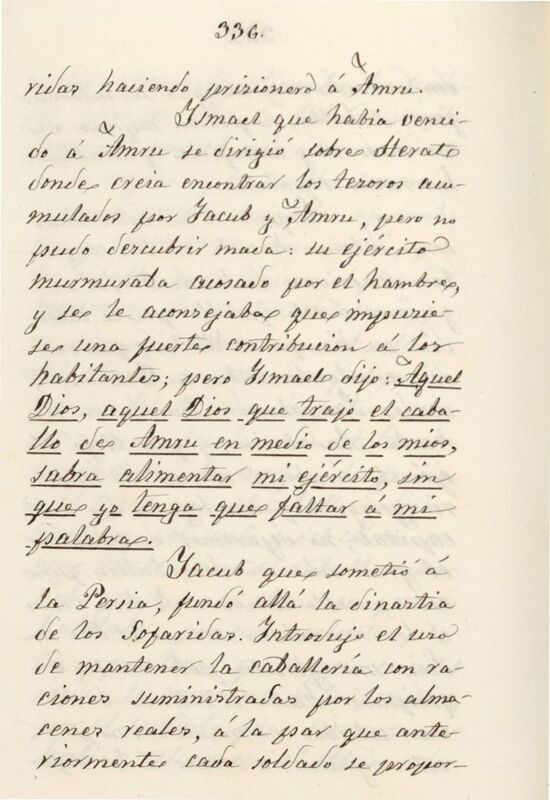 336.
ridas haciendo prizionero á Amru.
Ismael que habia venci-
do á Amru se dirigió sobre Herat
donde creia encontrar los tezoros acu-
mulados por Jacub y Amru, pero no
pudo descubrir mada: su ejército
murmuraba acosado por el hambre,
y se le aconsejaba que impusie-
se una fuerte contribucion á los
habitantes; pero Ismael dijo: Aquel
Dios, aquel Dios que trajo el caba-
llo de Amru en medio de los mios,
sabra alimentar mi ejército, sin
que yo tenga que faltar á mi
palabra.
Jacub que sometió á
la Persia, fundó allá la dinastia
de los Sofaridas. Introdujo el uso
de mantener la caballería con ra-
ciones suministradas por los alma-
cenes reales, á la par que ante-
riormente cada soldado se propor-